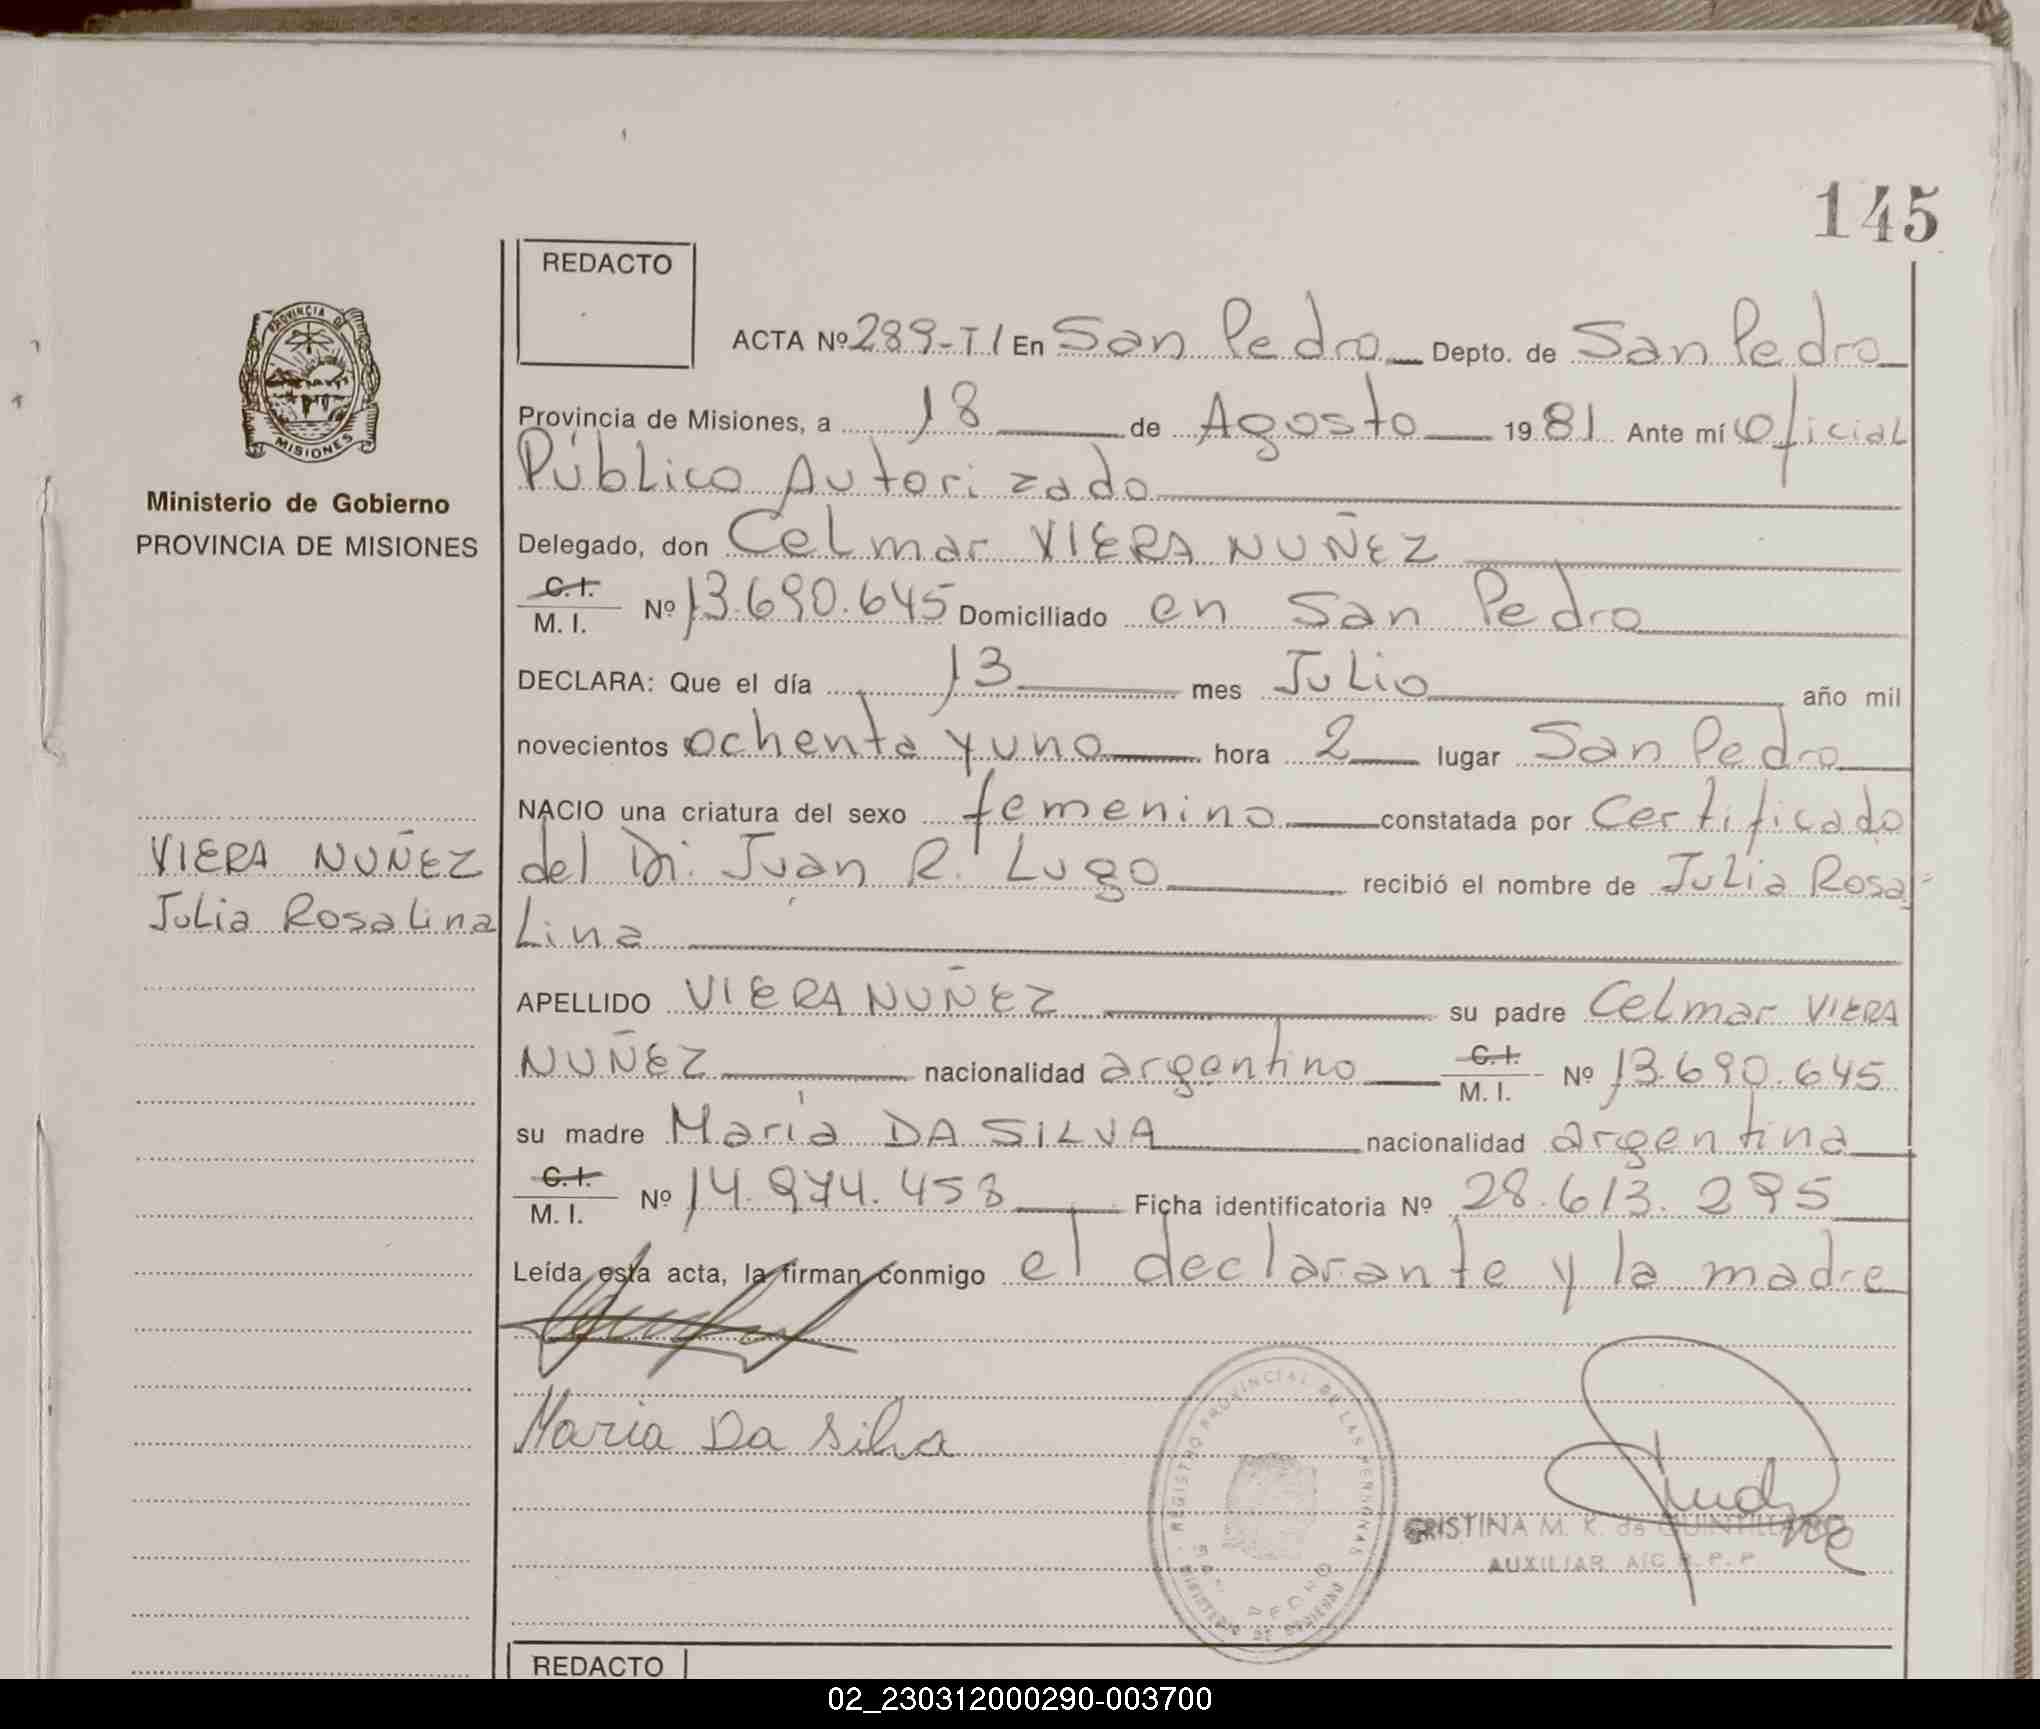 145
REDACTO
PROVINCIA DE MISIONES
ACTA Nº 289-TI En San Pedro Depto. de San Pedro
Provincia de Misiones, a 18 de Agosto 1981 Ante mí Oficial
Público Autorizado
Ministerio de Gobierno
PROVINCIA DE MISIONES
Delegado, don Celmar VIERA NUÑEZ
C.I. M. I. Nº 13.690.645 Domiciliado en San Pedro
DECLARA: Que el día 13 mes Julio año mil
novecientos ochenta y uno hora 2 lugar San Pedro
NACIO una criatura del sexo femenino constatada por Certificado
VIERA NUÑEZ
del Dr. Juan R. Lugo recibió el nombre de Julia Rosa-
Julia Rosalina
Lina
APELLIDO VIERA NUÑEZ su padre Celmar VIERA
NUÑEZ nacionalidad argentino C.I. M. I. Nº 13.690.645
su madre María DA SILVA nacionalidad argentina
C.I. M. I. Nº 14.974.458 Ficha identificatoria Nº 28.613.295
Leída esta acta, la firman conmigo el declarante y la madre
Maria Da Silva
REGISTRO PROVINCIAL DE LAS PERSONAS
SAN PEDRO
MINISTERIO DE GOBIERNO
CRISTINA M. K. de
AUXILIAR A/C R. P. P.
REDACTO
02_230312000290-003700